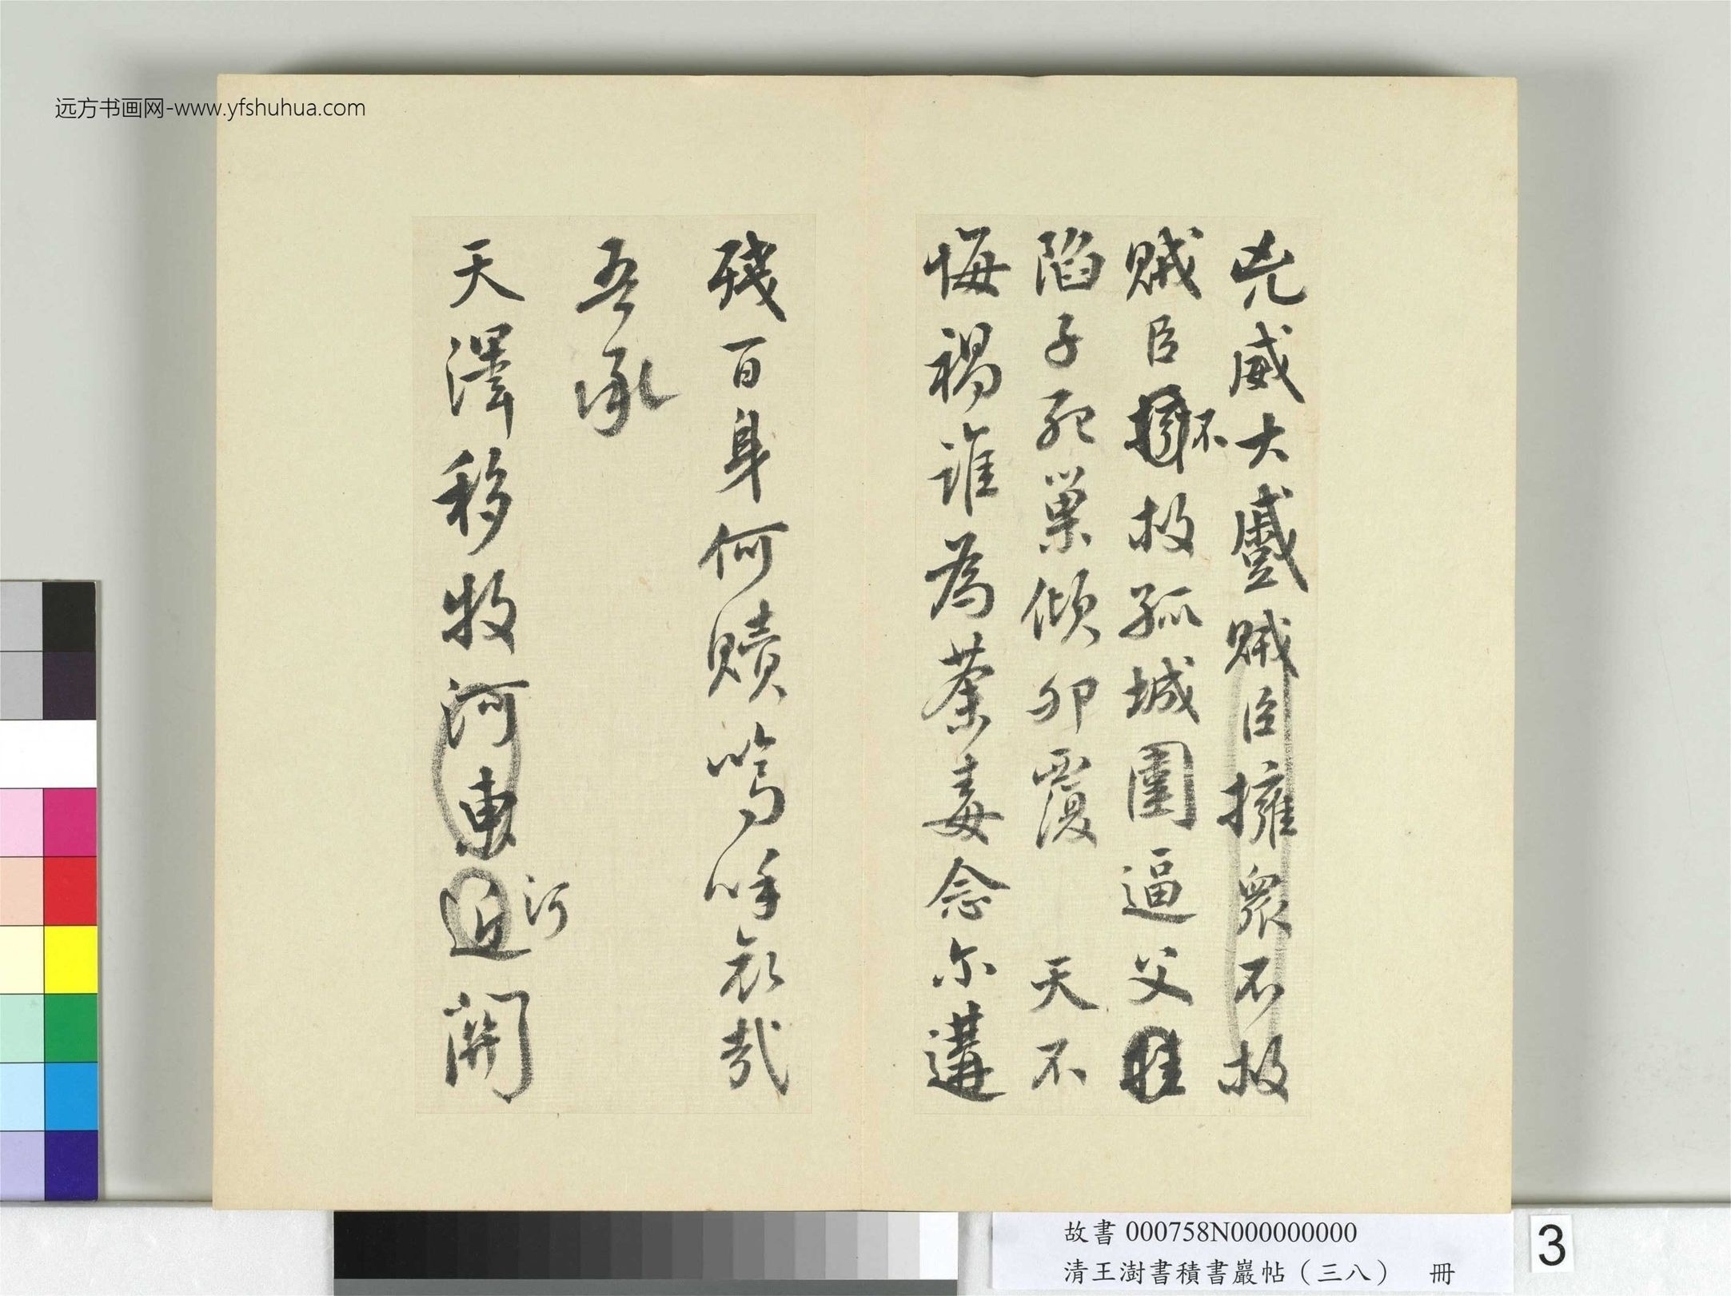 远方书画网-www.yfshuhua.com
兇威大蹙賊臣擁衆不救
賊臣不救孤城圍逼父
陷子死巢傾卵覆 天不
悔禍誰為荼毒念尔遘
殘百身何贖嗚呼哀哉
吾承
天澤移牧河東近河關
故書 000758N000000000
清王澍書積書巖帖（三八） 冊
3